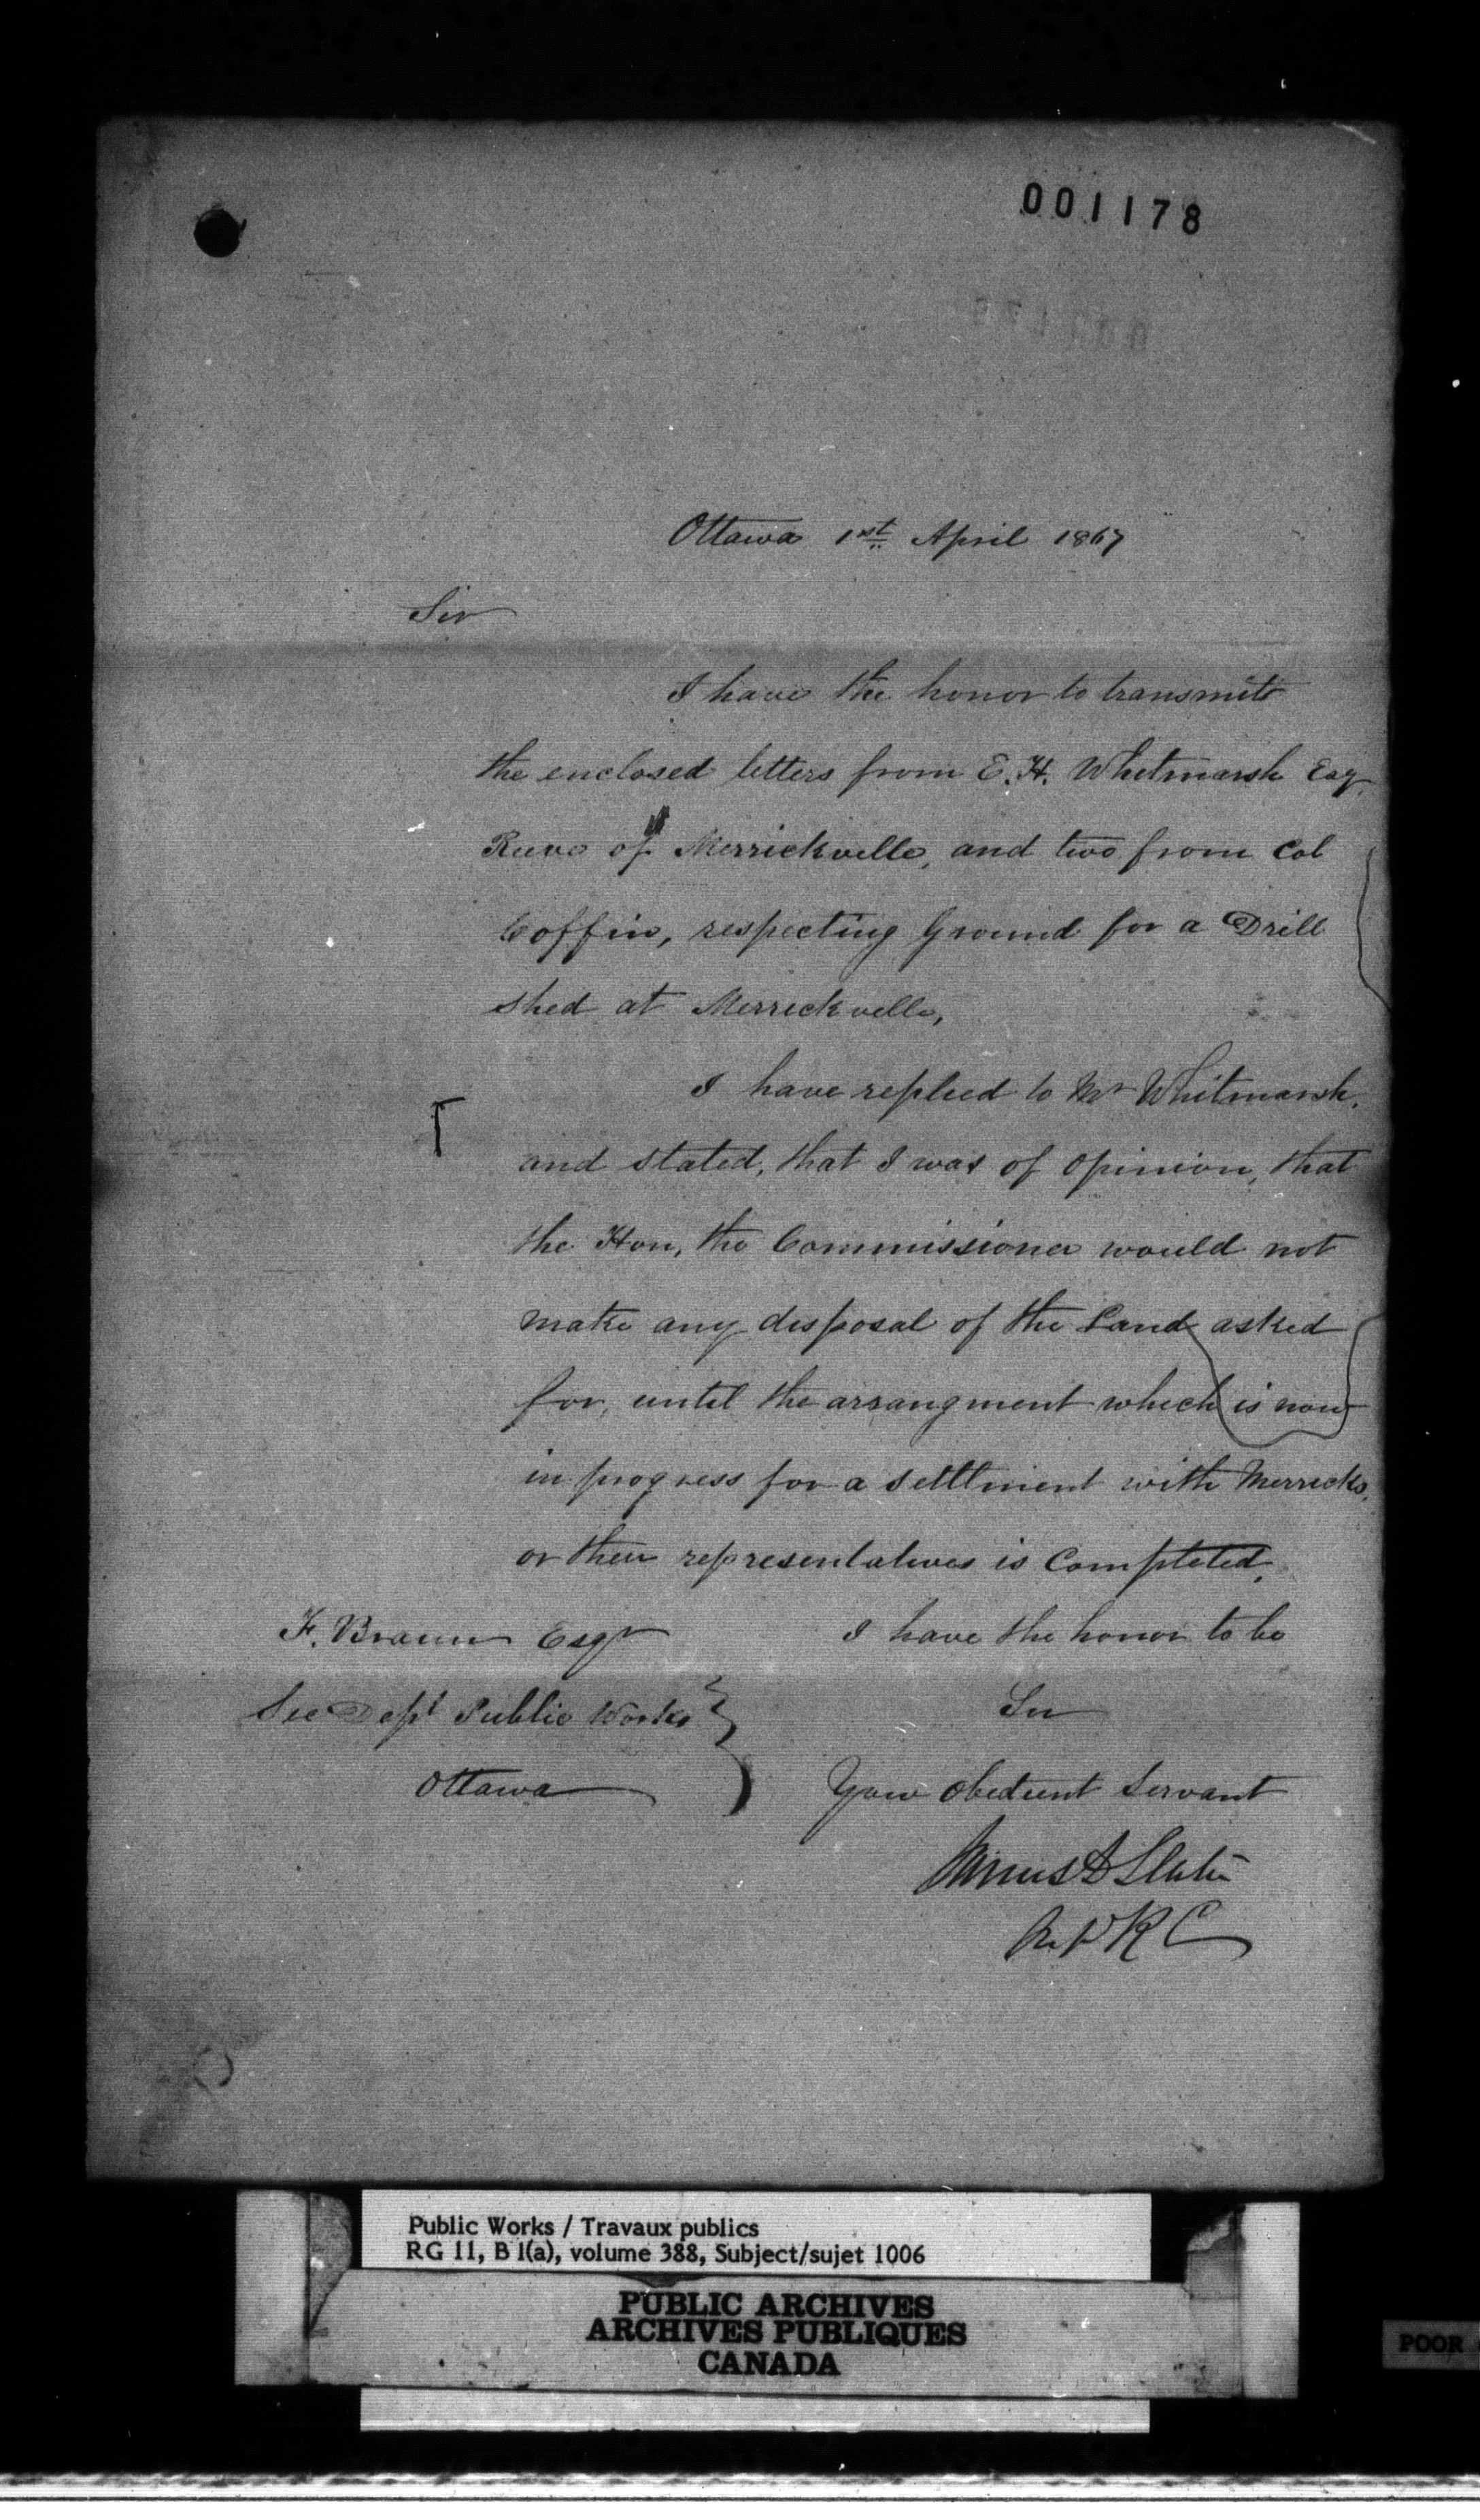 001178
Ottawa 1st April 1867
Sir
I have the honor to transmit
the enclosed letters from E. H. Whitmarsh Esq
Reeve of Merrickville, and two from Col
Coffin, respecting Ground for a Drill
shed at Merrickville,
I have replied to Mr Whitmarsh,
and stated, that I was of opinion, that
the Hon, the Commissioner would not
make any disposal of the Land asked
for, until the arrangment which is now
in progress for a settlment with Merricks,
or their representatives is Completed,
I have the honor to be
Sir
Your obedient Servant
James D Slater
F. Braun Esqr
Sec Dept Public Works
Ottawa
Public Works / Travaux publics
RG 11, B 1(a), volume 388, Subject/sujet 1006
PUBLIC ARCHIVES
ARCHIVES PUBLIQUES
CANADA
POOR